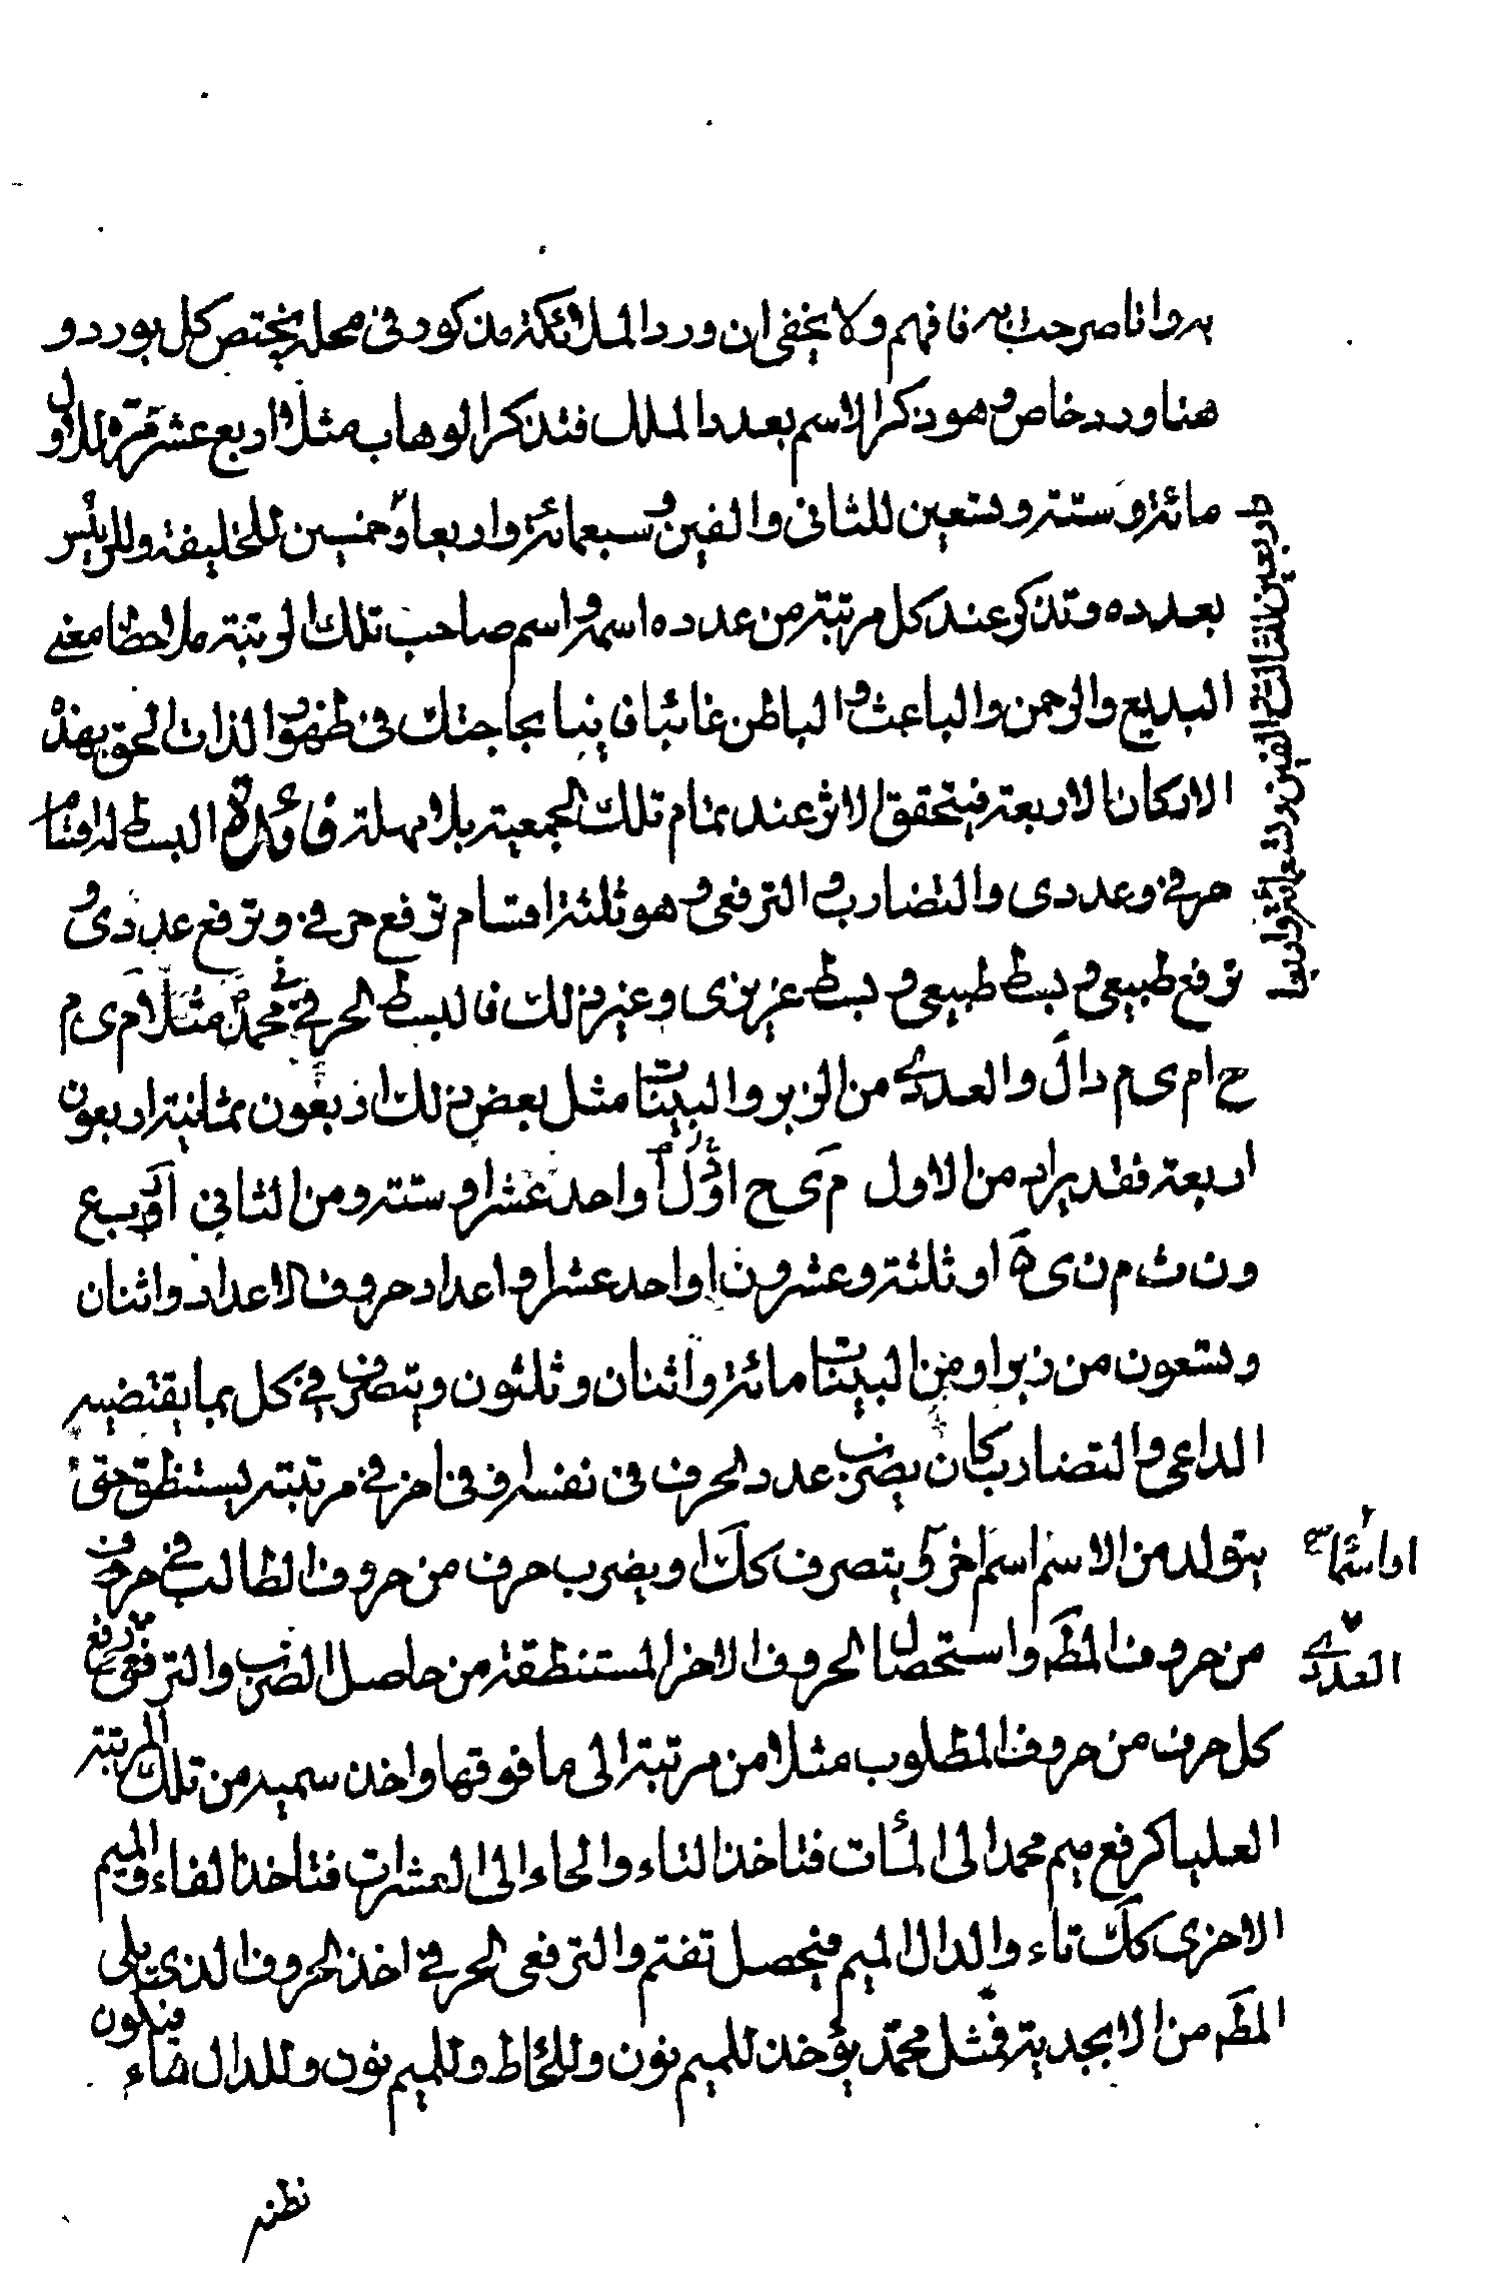 به وانا صرحت به فافهم ولا يخفى ان ورد الملائكة مذكور في محله يختص كل بورد و
هنا ورد خاص وهو ذكر الاسم بعدد الملك فتذكر الوهاب مثلا اربع عشر مرة للاول و
مائة وستة وتسعين للثاني والفين وسبعمائة واربعا وخمسين للخليفة وللرئيس
واربعين للثالث والفين وتسعمائة واربعا
بعدده وتذكر عند كل مرتبة من عدده اسمه واسم صاحب تلك الرتبة ملاحظا معنى
البديع والرحمن والباعث والباطن غائبا فانيا بحاجتك في ظهور الذات الحق بهذه
الاركان الاربعة فيتحقق الاثر عند تمام تلك الجمعية بلا مهلة فائدة البسط له اقسام
حرفي وعددي والتضارب والترفعى وهو ثلثة اقسام ترفع حرفي وترفع عددي و
ترفع طبيعي وبسط طبيعي وبسط عزيزي وغير ذلك فالبسط الحرفي في محمد مثلا م ى م
ح ا م ى م د ا ل والعددي من الزبر والبينات مثل بعض ذلك اربعون ثمانية اربعون
اربعة فقد يراد من الاول م ى ح ا و د ل او احد عشر او ستة ومن الثاني ا و ر ب ع
و ن ث م ن ى ه او ثلثة وعشرون او احد عشر او اعداد حروف الاعداد واثنان
وتسعون من زبر او من البينات مائة واثنان وثلثون ويتصرف في كل بما يقتضيه
الداعي والتضارب كان يضرب عدد الحرف في نفسه او في اخر في مرتبته يستنطق حتى
يتولد من الاسم اسم اخر ويتصرف كك او يضرب حرف من حروف الطالب في حرف
او اسماء
من حروف المط واستحصال الحروف الاخر المستنطقة من حاصل الضرب والترفعى رفع
العددي
كل حرف من حروف المطلوب مثلا من مرتبة الى ما فوقها واخذ سميه من تلك المرتبة
العليا كرفع ميم محمد الى المئات فتاخذ التاء والحاء الى العشرات فتاخذ الفاء والميم
الاخرى كك تاء والدال الميم فيحصل تفتم والترفعى الحرفي اخذ الحروف الذي يلي
المط من الابجدية فمثل محمد يؤخذ للميم نون وللحاط وللميم نون وللدال هاء فيكون
نطنه